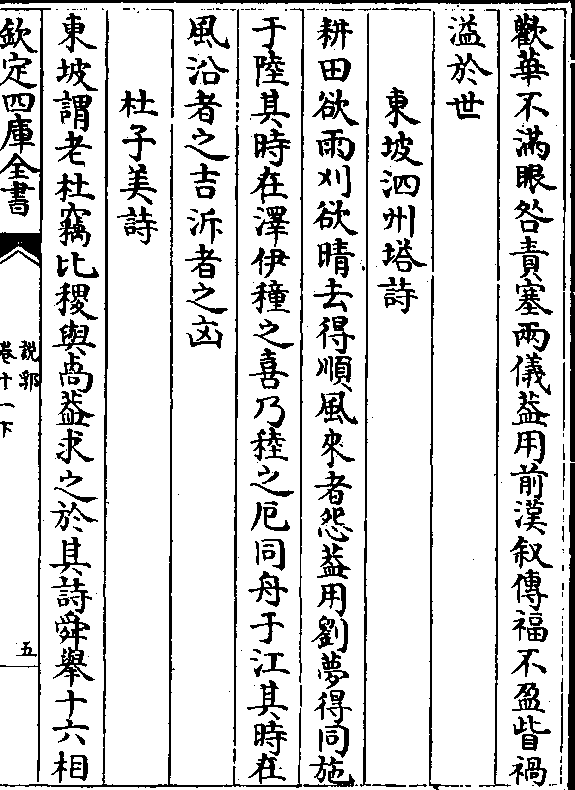 歡華不滿眼咎責塞兩儀葢用前漢叙傳福不盈眥禍
溢於世
東坡泗州塔詩
耕田欲雨刈欲晴去得順風來者怨葢用劉夢得同施
于陸其時在澤伊穜之喜乃稑之厄同舟于江其時在
風沿者之吉泝者之㐫
杜子美詩
東坡謂老杜竊比稷與卨葢求之於其詩舜舉十六相
欽定四庫全書
說郛
卷十一下
五